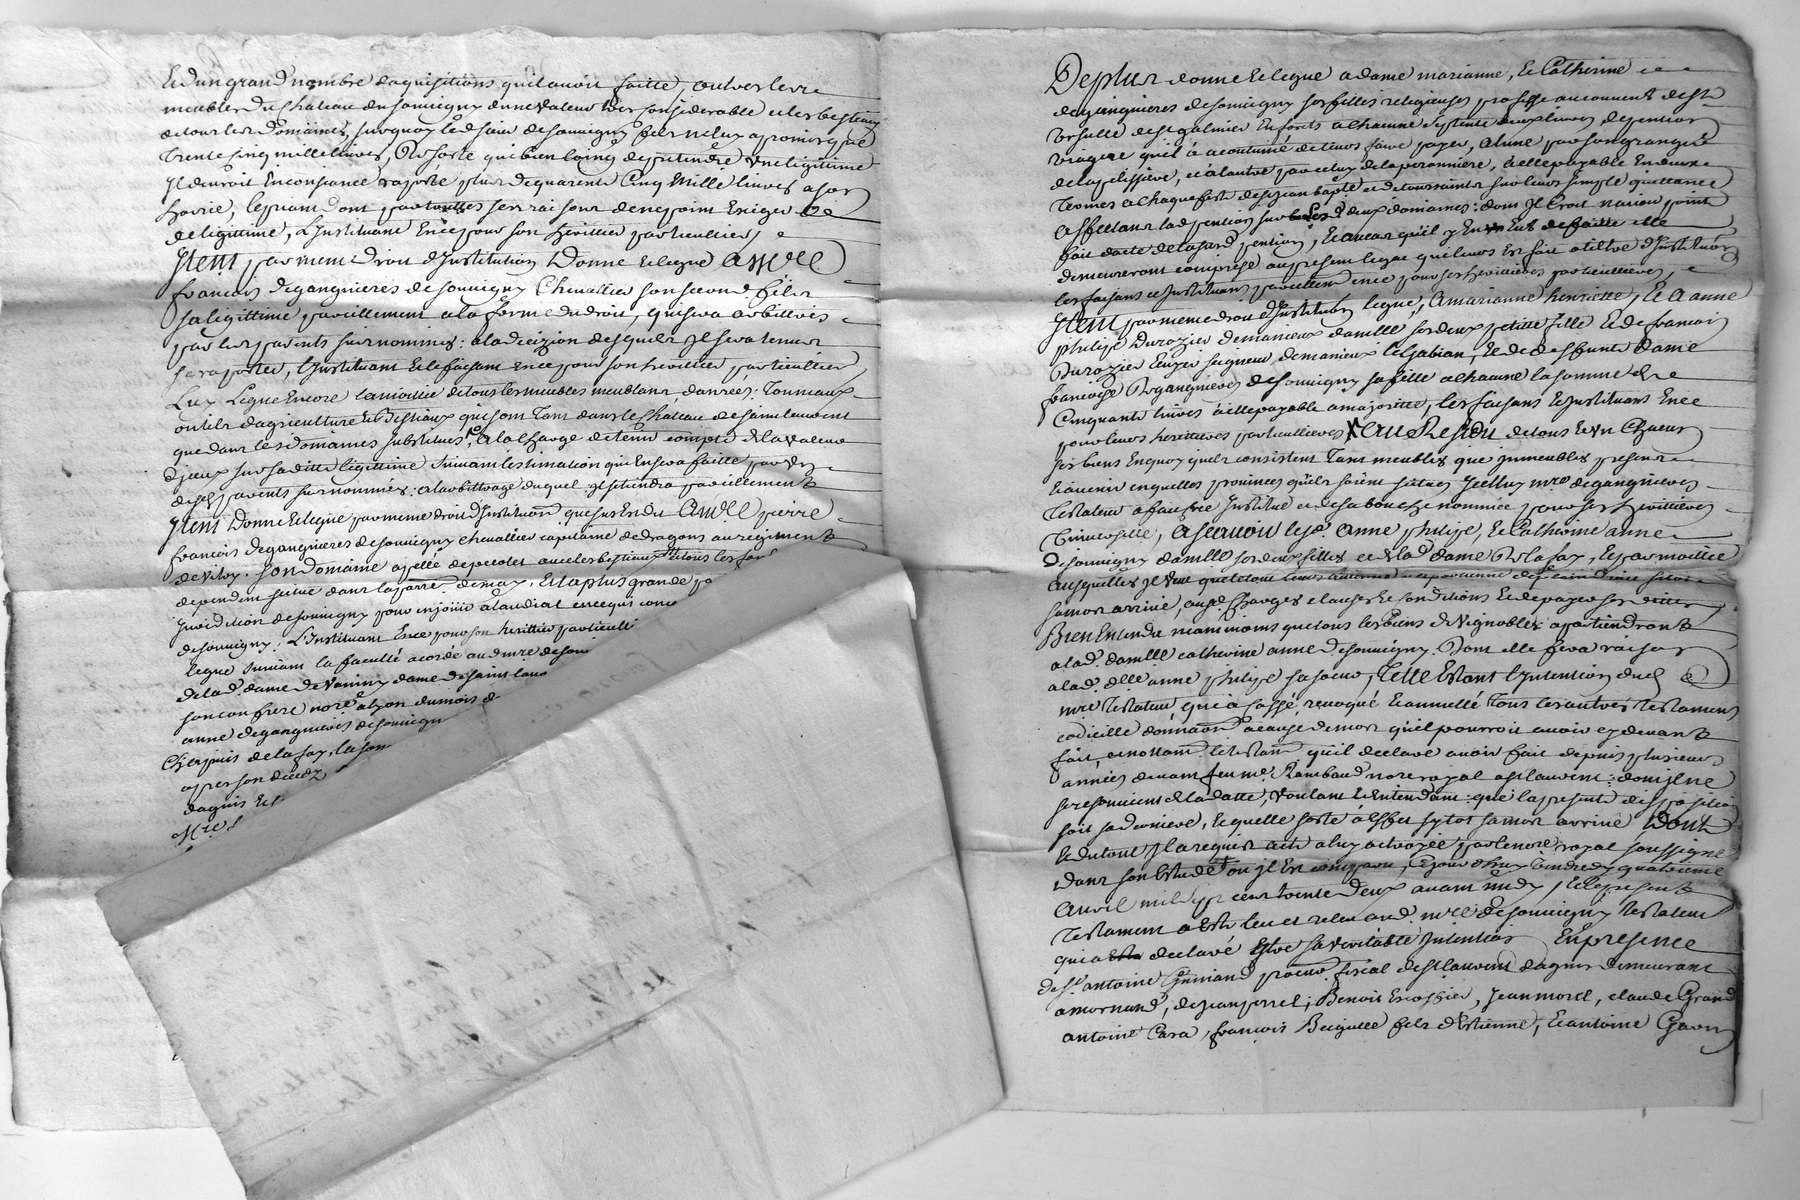 Et dun grand nombre daquisitions quil auoit faitte, outres le
meubles du chateau de souuigny dune valeur tres considerable et les bestiaux
de tous les domaines, surquoy led sieur de souuigny
trente cinq mille liures, de sorte que bien loing de pretendre vne legittime
Il deuroit en consiance raporte plus de quarente cinq mille liures a son
hoirie, le priant dont par touttes ses raisons de ne point exiger de
de legittime, L'instituant en ce pour son heritier particullier,
Item par meme droit d'Institution Donne et legue a Mre
francois degangnieres de souuigny Cheuallier son second fils
sa legittime pareillement a la forme du droit, qui sera arbittrés
par les parents surnommés : a la dicizion desquels Il sera tenu
se raporter, l'instituant et le faisant en ce pour son heritier particullier,
Luy Legue Encore la moitie de tous les meubles meublans, danrées, Tonneaux
outils dagriculture et Bestiaux qui sont tant dans le chateau de saint laurent
que dans les domaines substitués, a la charge de tenir compte de la valeur
d'jceux sur sa ditte legittime suiuant lestimation qui en sera faitte par
desd parents surnommés : a larbittrage duquel Il se tiendra pareillement
Item Donne et legue par meme droit d'Institution que sus est dit a Mre pierre
francois degangnieres de souuigny cheuallier capitaine de dragons au regiment
de vitry. son domaine apellé auec les bestiaux et tous les fon
dependent situé dans la parr. de may, et la plus grande pa
jurididition de souuigny pour en jouir
de souuigny, L'Instituant En ce pour son heritier particulli
legue suiuant la faculté acordé aud mre de souu
de lad. dame de dame de saint laur
son confrere nore a lyon du mois de
anne degangnieres de souuign
de la fay, la som
apres son decez
daquis et
Mre
De plus donne et legue a dame marianne, et Catherine
degangnieres de souuigny ses filles religieuses professe au couuent de ste
vrsulle de st galmier en forets a chacune septente deux liures de pention
viagere quil à acoutumé de leurs faire payer, a lune par son granger
de la plissiere, et a lautre par celuy de la peronniere, a elle payable en deux
termes a chaque feste de st jean baptê et de toussaints sur leurs simple quittance
affectans lad pention sur deux domaines : dont Il croit nauoir point
fait dacte de lasurd pention, et au cas quil y en eut de faitte elle
demeureront comprise au present legat qui leurs est fait a tiltre d'Institution
les faisans et Instituans pareillem en ce pour ses heritieres particullieres,
Item par meme droit d'Institution legue, A marianne henriette, et a anne
philipe Durozier de manieux damlle ses deux petitte fille et de francois
Durozier Ecuyer seigneur de manieux le gabian, et de deffunte dame
francoise degangnieres de souuigny sa fille a chacune la somme de
Cinquante liures a elle payable a majoritté, les faisans et Instituans En ce
pour leurs heritieres particullieres Au Residu de tous et vn chacun
ses biens en quoy quils consistent tant meubles que jmmeubles presents
et auenir en quelles prouinces quils soient situés Icelluy mre degangnieres
testateur a fait et Institué et de sa bouche nommée pour ses heritieres
vniuerselle, a scauoir les d. anne philipe, et Catherine anne
de souuigny damlle ses deux filles et lad dame de la fay, et par moittié
ausquelles Il veut que le tout
sa mort arriué, auxd. charges clauses et conditions et de payer ses dettes
Bien entendu neanmoins que tous les biens de vignobles apartiendront
a lad. damlle catherine anne de souuigny. dont elle fera raison
a lad. dlle anne philipe sa soeur, Telle Estant l'Intention dud
mre Testateur, qui a cassé, reuoqué et annullé Tous les autres testamens
codicille donnaon a cause de mort quil pourroit auoir cy deuant
fait, et nottam le testam quil declare auoir fait depuis plusieurs
années deuant feu me Rambaud nore royal a st laurent : dont jl ne
se resouuient de la datte, voulant et entendant : que la presente disposition
soit sa derniere, et quelle sorte a effet sytot sa mort arriué Dont
et du tout Jl a requis acte a luy octroyée par le nore royal soussigné
dans son Estude ou Jl est comparu, Cejourdhuy vendredy quatrieme
Auril mil sept cent trente deux auant midy, et le present
Testament a esté leu et releu aud. mre de souuigny testateur
qui a declaré Estre sa veritable Intention En presence
de sr antoine Guinand procur. fiscal de st laurent dagnis demeurant
a mornand, de jean perret, Benoit Escoffier, Jean morel, claude Grand
antoine Cara, francois fils d'Estienne, et antoine Gaon